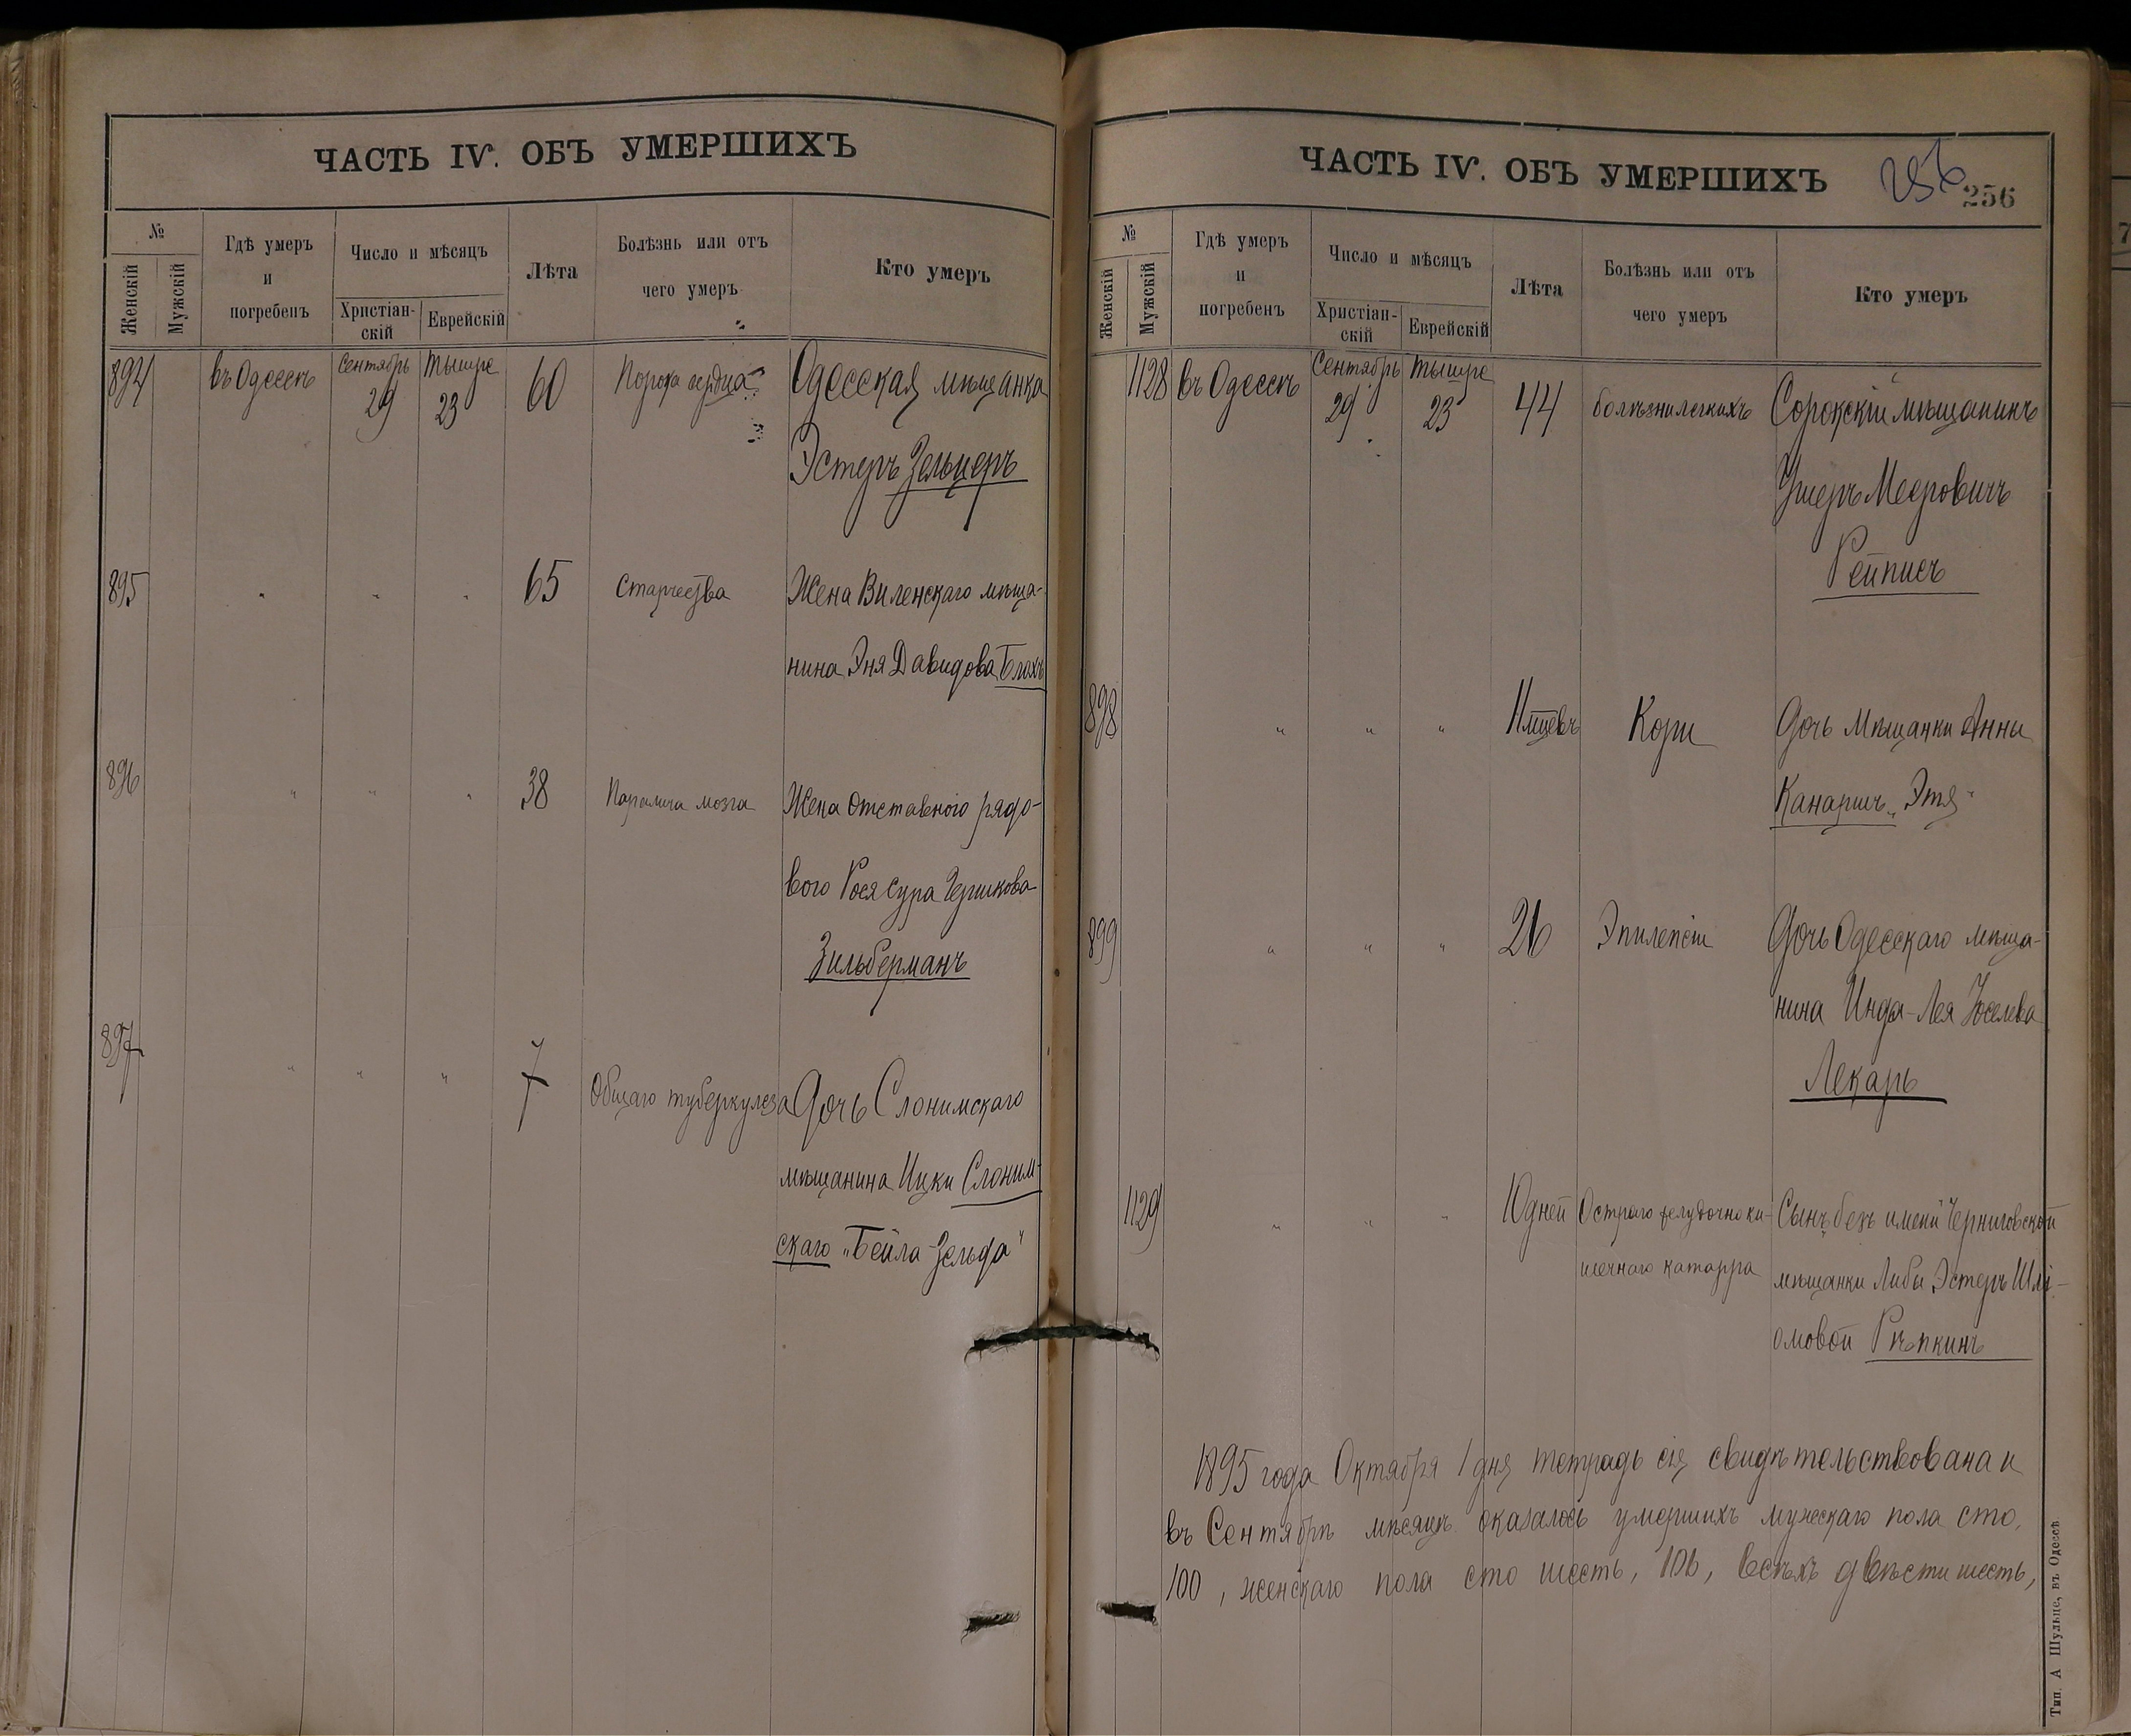 ЧАСТЬ IV. ОБЪ УМЕРШИХЪ
№
Женскій
Мужскій
Гдѣ умеръ
и
погребенъ
Число и мѣсяцъ
Христіан-
скій
Еврейскій
Лѣта
Болѣзнь или отъ
чего умеръ
Кто умеръ
894 въ Одессѣ Сентябрь 29 Тышре 23 60 Порока сердца Одесская мѣщанка
Эстеръ Зельцеръ
895 " " " 65 Старчества Жена Виленскаго мѣща-
нина Эня Давидова Блохъ
896 " " " 38 Паралича мозга Жена отставного рядо-
вого Рося Сура Гершкова
Зильберманъ
897 " " " 7 Общаго туберкулеза Дочь Слонимскаго
мѣщанина Ицки Слоним-
скаго „Бейла-Зельда"
ЧАСТЬ IV. ОБЪ УМЕРШИХЪ
256
256
№
Женскій
Мужскій
Гдѣ умеръ
и
погребенъ
Число и мѣсяцъ
Христіан-
скій
Еврейскій
Лѣта
Болѣзнь или отъ
чего умеръ
Кто умеръ
1128 въ Одессѣ Сентябрь 29 Тышре 23 44 болѣзни легкихъ Сорокскій мѣщанинъ
Ушеръ Мееровичъ
Рейписъ
898 " " " Кори Дочь Мѣщанки Анны
Канаришъ „Этя"
899 " " " 26 Эпилепсіи Дочь Одесскаго мѣща-
нина Инда-Лея Іоселева
Лекарь
1129 " " " 10 дней Остраго желудочно ки- Сынъ безъ имени Черниговской
шечнаго катарра мѣщанки Либы Эстеръ Шлі-
омовой Рѣпкинъ
1895 года Октября 1 дня тетрадь сія свидѣтельствована и
въ Сентябрѣ мѣсяцѣ оказалось умершихъ мужескаго пола сто,
100, женскаго пола сто шесть, 106, всѣхъ двѣсти шесть,
Тип. А Шульце, въ Одессѣ